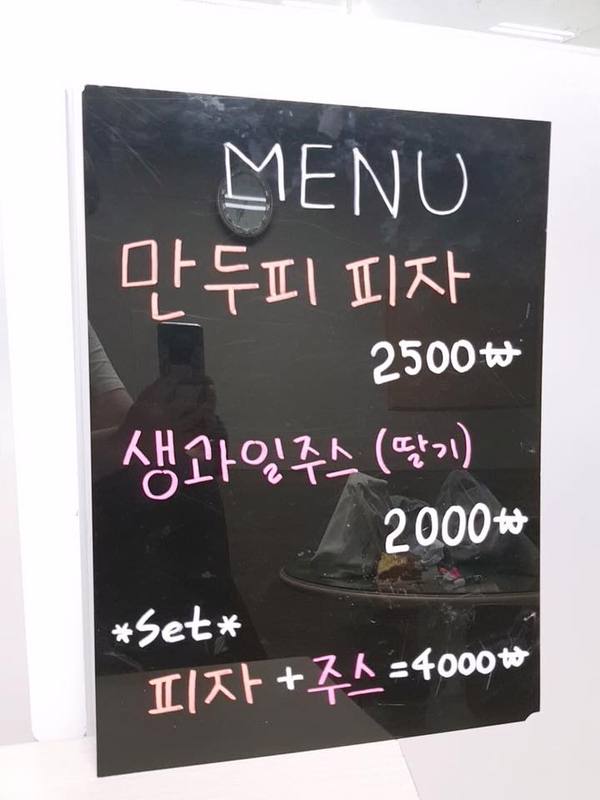 MENU
만두피 피자
2500₩
생과일주스 (딸기)
2000₩
*Set*
피자 + 주스 = 4000₩